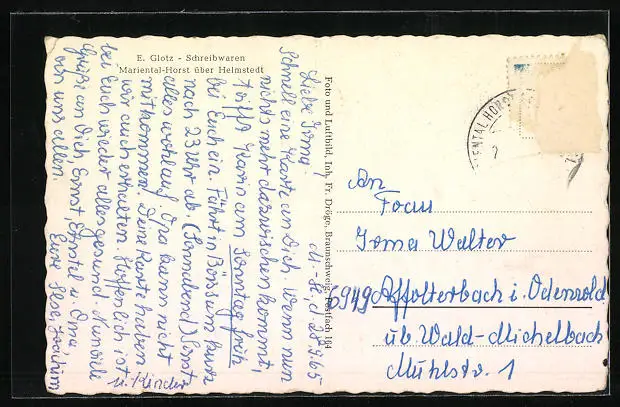 E. Glotz - Schreibwaren
Mariental-Horst über Helmstedt
M.-H., d. 28.9.65
Liebe Irma,
Schnell eine Karte an Dich. Wenn nun
nichts mehr dazwischen kommt,
trifft Karin am Sonntag früh
bei Euch ein. Fährt in Börssum kurz
nach 23 Uhr ab. (Sonnabend) Sonst
alles wohlauf. Opa kann nicht
mitkommen. Deine Karte haben
wir auch erhalten. Hoffentlich ist
bei Euch wieder alles gesund. Nun viele
Grüße an Dich, Ernst, u. Oma
von uns allen. Eure Ilse, Joachim
u. Kinder
Foto und Luftbild, Inh. Fr. Dröge, Braunschweig, Postfach 164
MARIENTAL HORST
An
Frau
Irma Walter
6949 Affolterbach i. Odenwald
üb. Wald-Michelbach
Mühlstr. 1